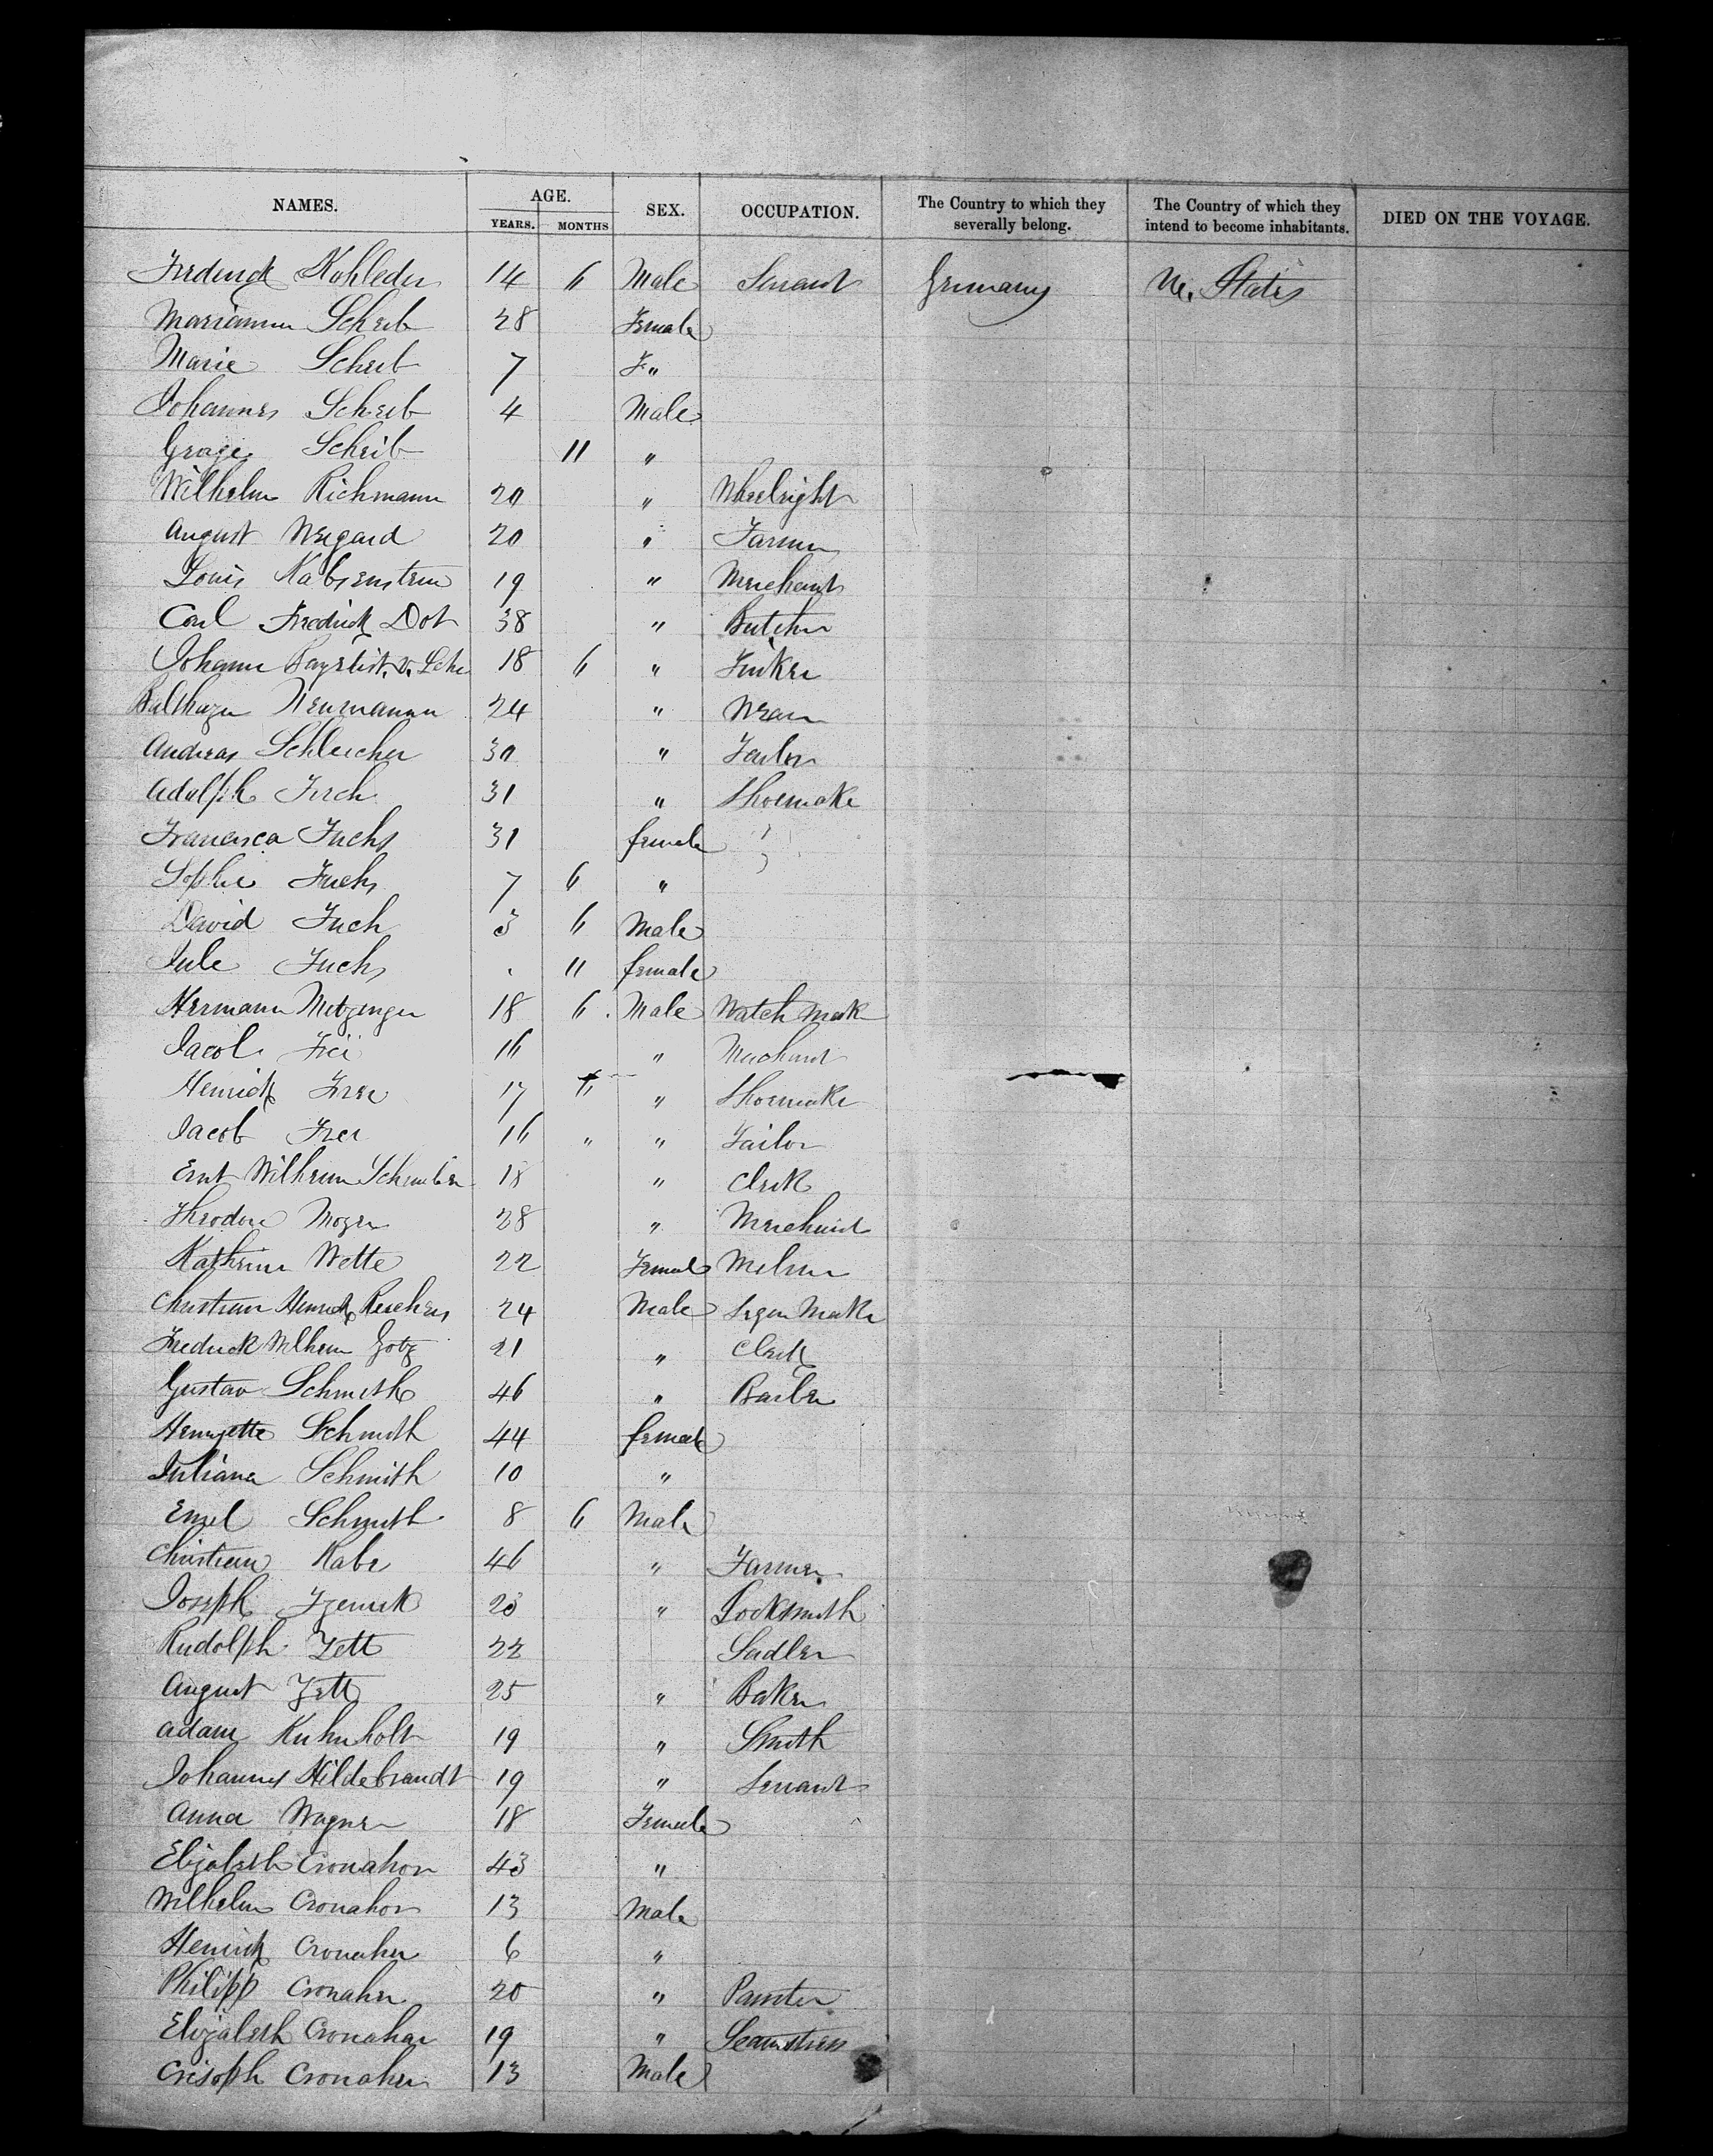 NAMES. AGE. SEX. OCCUPATION. The Country to which they severally belong. The Country of which they intend to become inhabitants. DIED ON THE VOYAGE.
YEARS. MONTHS
Frederick Kohleder 14 6 Male Servant Germany Un. States
Marianna Scheib 28 Female
Marie Scheib 7 F "
Johannes Scheib 4 Male
George Scheib 11 "
Wilhelm Richmann 20 " Wheelright
August Weigand 20 " Farmer
Louis Kabsenstein 19 " Merchant
Carl Fredrick Dot 38 " Butcher
Johann 18 6 "
Balthazer Neumann 24 "
Andreas Schleicher 30 " Tailor
Adolph 31 " Shoemake
Francisca Fuchs 31 female
Sophie Fuchs 7 6 "
David Fuch 3 6 Male
Jule Fuchs 11 female
Hermann Metzenger 18 6 Male Watch Mak
Jacob Frei 16 "
Henrich Frei 17 " Shoemake
Jacob Frei 16 " " Tailor
Ernt Wilhelm 18 " Clerk
Theodore Mozer 28 " Merchant
Kathrina Wette 22 Femal
Christian Henrich Reichers 24 Male Segar Make
Fredrick Wilhem Gotz 21 " Clerk
Gustav Schmith 46 " Barber
Henryette Schmith 44 female
Juliana Schmith 10 "
Emil Schmith 8 6 Male
Christian Rabe 46 " Farmer
Joseph 23 " Locksmith
Rudolph Zett 22 Sadler
August Zett 25 " Baker
Adam Kuhnholt 19 " Smith
Johannes Hildebrandt 19 " Servant
Anna Wagner 18 Female
Elizabeth Cronahor 43 "
Wilhelm Cronahor 13 Male
Henrich Cronaher 6 "
Philipp Cronaher 20 " Painter
Elizabeth Cronahar 19 " Seamstress
Crisoph Cronaher 13 Male